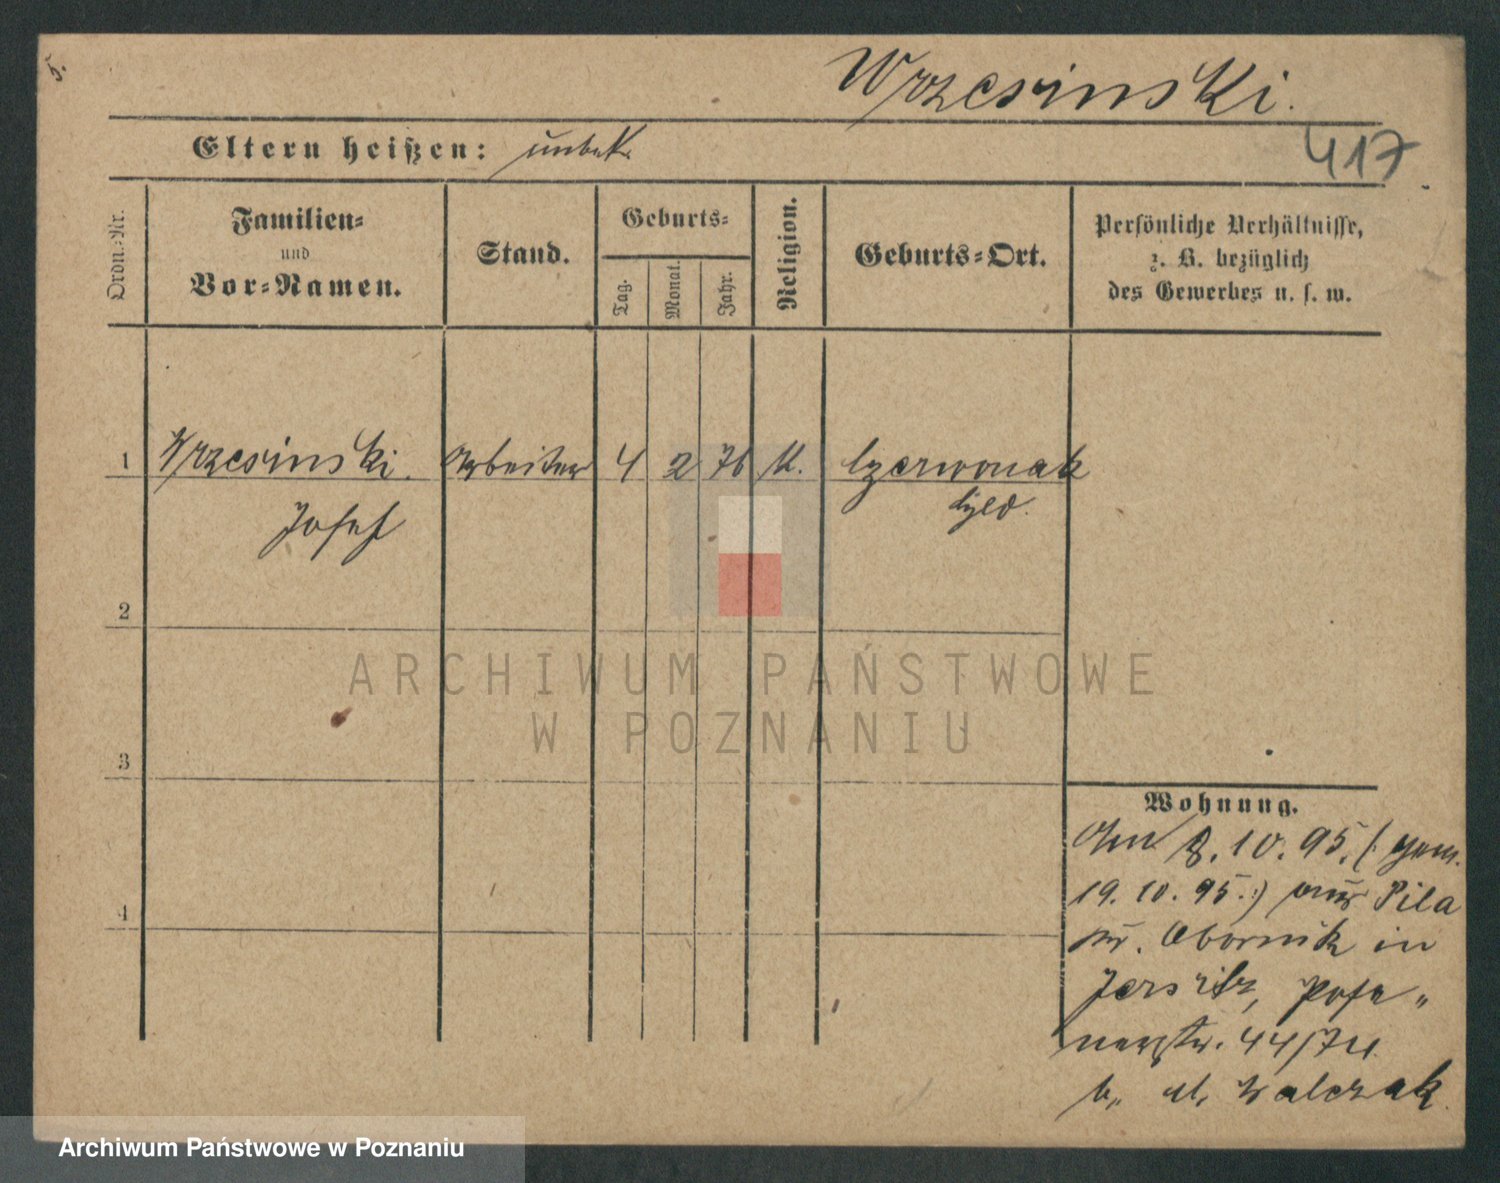 5.
Wrzesinski.
417
Eltern heißen: unbek.
Ordn.-Nr.
Familien-
und
Vor-Namen.
Stand.
Geburts-
Tag.
Monat.
Jahr.
Religion.
Geburts-Ort.
Persönliche Verhältnisse,
z. B. bezüglich
des Gewerbes u. s. w.
1 Wrzesinski. Arbeiter 4 2 76 k. Czerwonak
Josef
2
3
4
ARCHIWUM PAŃSTWOWE
W POZNANIU
Wohnung.
Am 8. 10. 95. (: gem.
19. 10. 95. :) aus Pila
Kr. Obornik in
Jersitz, Pose-
nerstr. 44/74
b. Walczak.
Archiwum Państwowe w Poznaniu